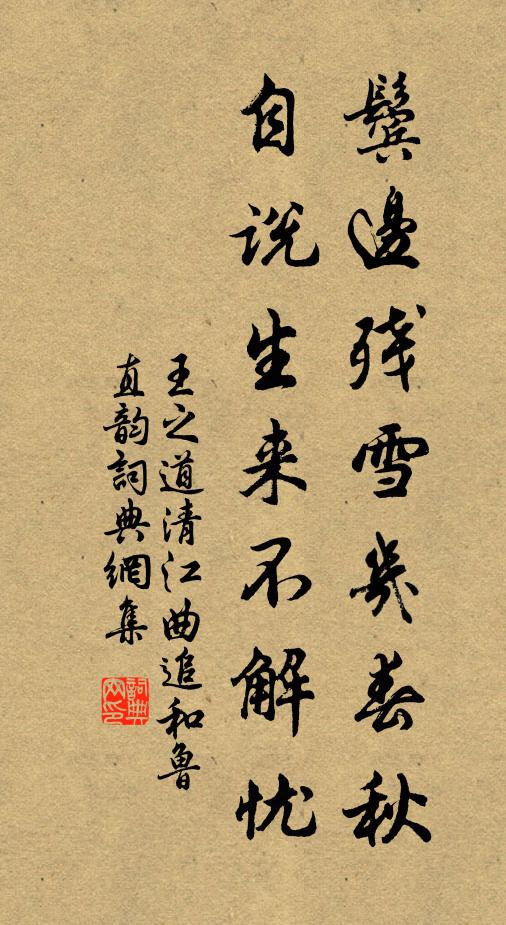 鬓邊残雪幾春秋
自说生来不解忧
王之道清江曲追和鲁
直韵詞典網集
詞典網印